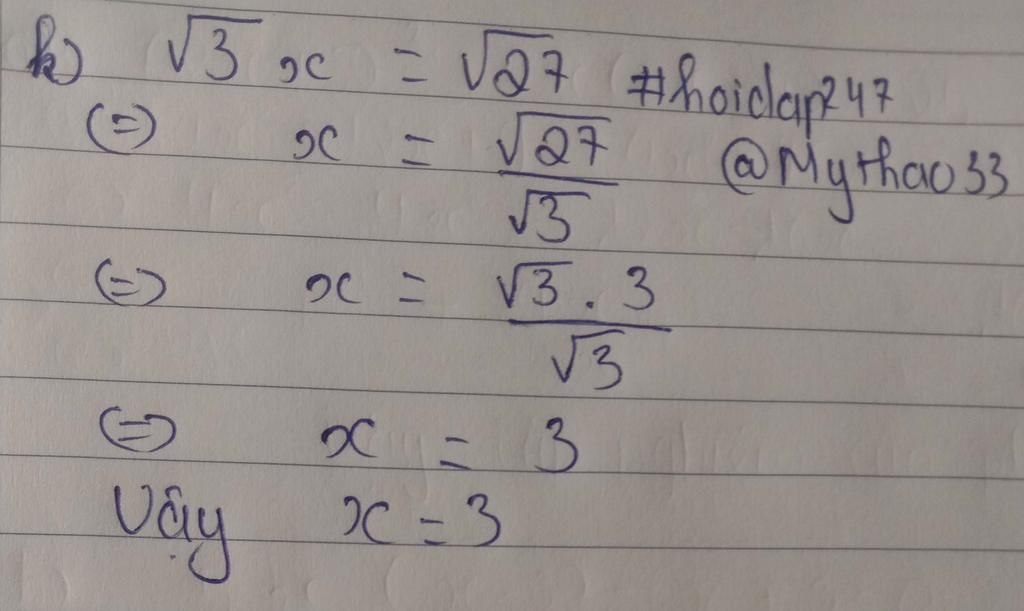 k) √3 x = √27 #hoidap247
(=) x = √27/√3 @Mythao33
(=) x = √3 . 3/√3
(=) x = 3
Vậy x = 3